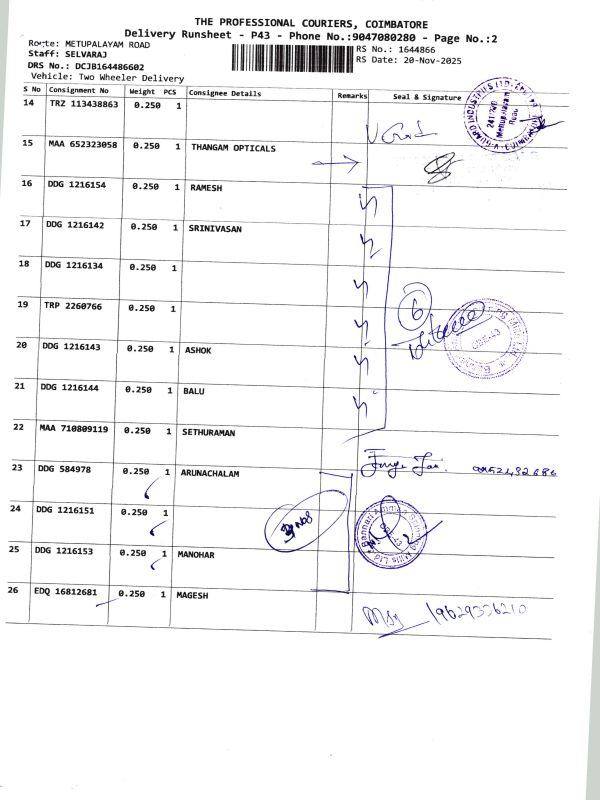 THE PROFESSIONAL COURIERS, COIMBATORE
Delivery Runsheet - P43 - Phone No.:9047080280 - Page No.:2
Route: METUPALAYAM ROAD
RS No.: 1644866
Staff: SELVARAJ
RS Date: 20-Nov-2025
DRS No.: DCJB164486602
Vehicle: Two Wheeler Delivery
S No Consignment No Weight PCS Consignee Details Remarks Seal & Signature
14 TRZ 113438863 0.250 1
15 MAA 652323058 0.250 1 THANGAM OPTICALS
16 DDG 1216154 0.250 1 RAMESH
17 DDG 1216142 0.250 1 SRINIVASAN
18 DDG 1216134 0.250 1
19 TRP 2260766 0.250 1
6
20 DDG 1216143 0.250 1 ASHOK
21 DDG 1216144 0.250 1 BALU
22 MAA 710809119 0.250 1 SETHURAMAN
23 DDG 584978 0.250 1 ARUNACHALAM
24 DDG 1216151 0.250 1
Bannari Amman Spinning Mills Ltd
CBE-43
25 DDG 1216153 0.250 1 MANOHAR
26 EDQ 16812681 0.250 1 MAGESH
9629336210